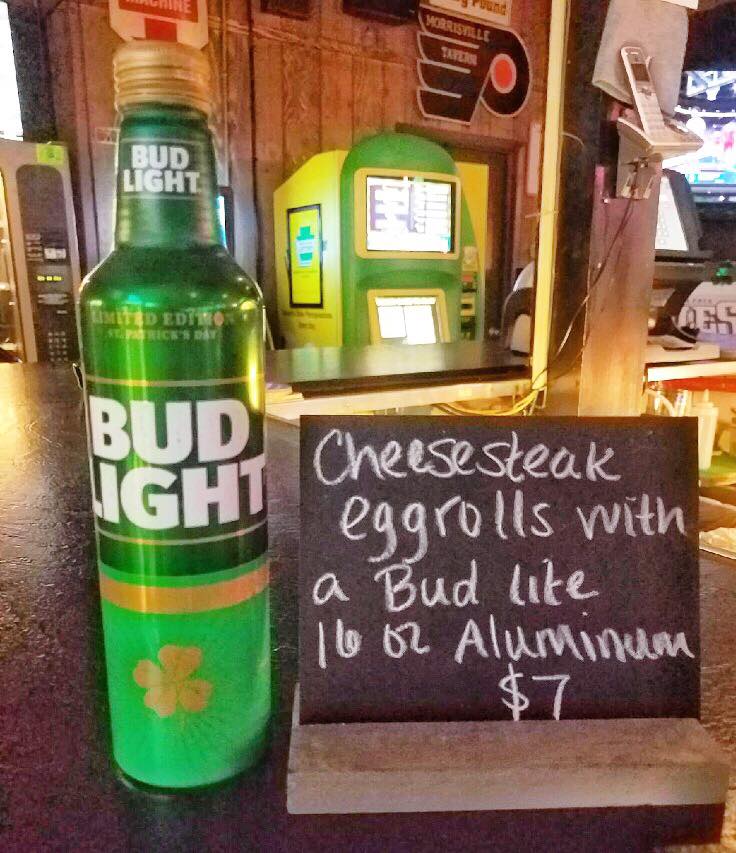 MACHINE
Pound
MORRISVILLE
TAVERN
BUD
LIGHT
LIMITED EDITION
ST. PATRICK'S DAY
BUD
LIGHT
Cheesesteak
eggrolls with
a Bud lite
16 oz Aluminum
$7